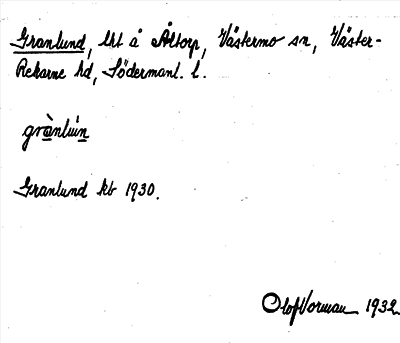 Granlund, lht å Åltorp, Västermo sn, Väster-
Rekarne hd, Södermanl. l.
grànlun
Granlund kb 1930.
Olof Vorman 1932.